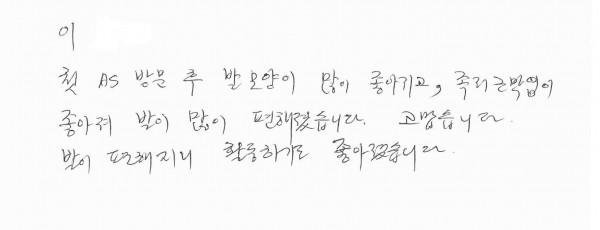 이
첫 AS 방문 후 발모양이 많이 좋아지고, 족저근막염이
좋아져 발이 많이 편해졌습니다. 고맙습니다.
발이 편해지니 활동하기도 좋아졌습니다.